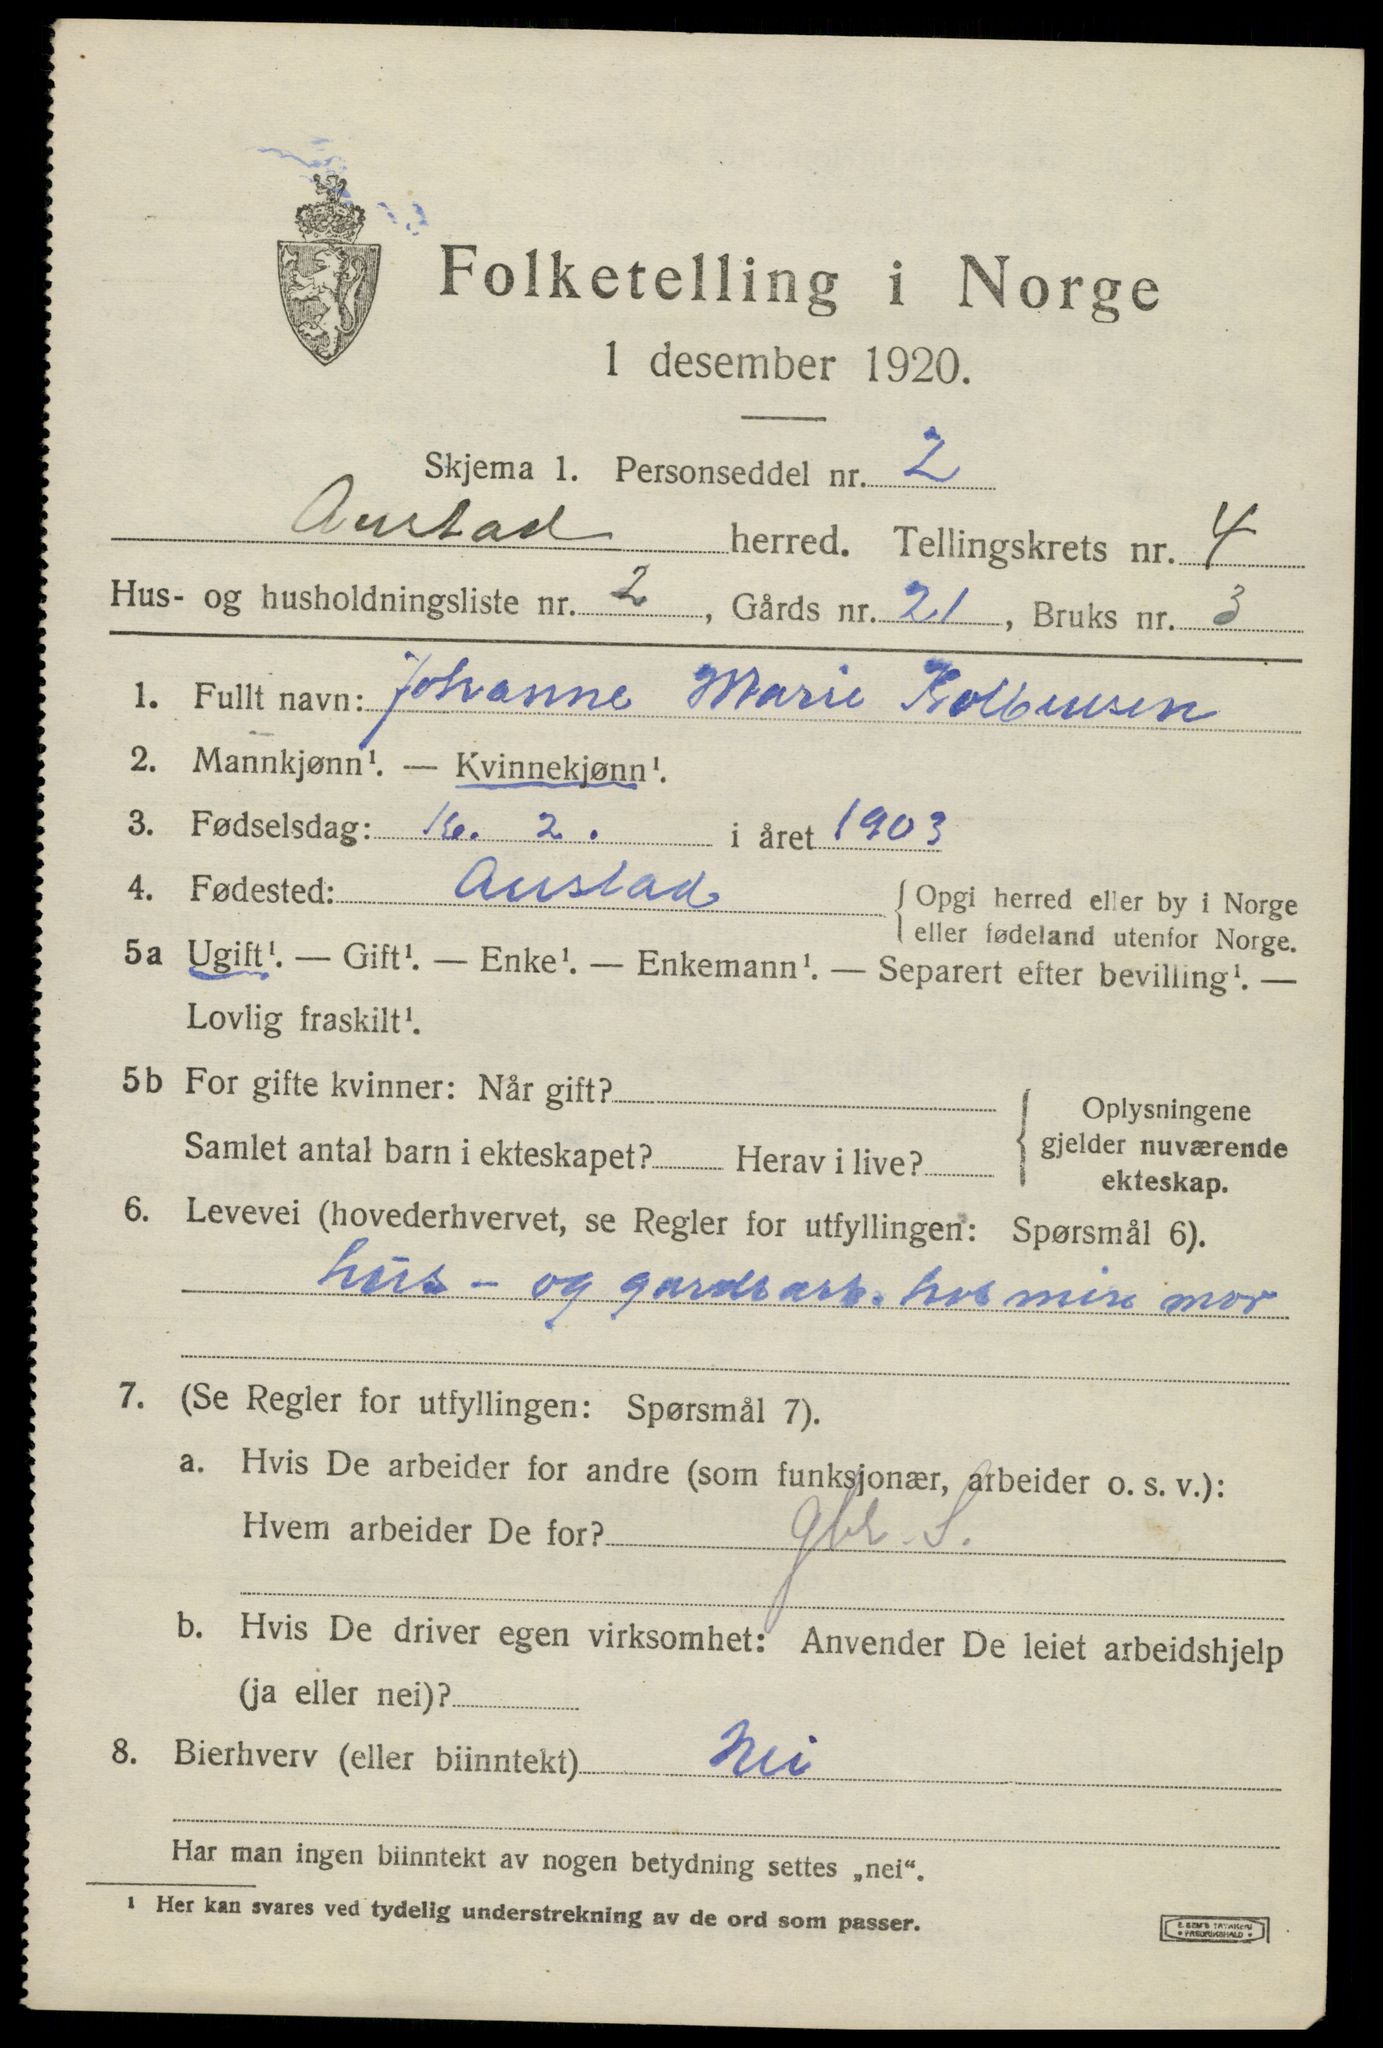 Folketelling i Norge
1 desember 1920.
Skjema 1. Personseddel nr. 2
Austad herred. Tellingskrets nr. 4
Hus- og husholdningsliste nr. 2, Gårds nr. 21, Bruks nr. 3
1. Fullt navn: Johanne Marie
2. Mannkjønn¹. — Kvinnekjønn¹.
3. Fødselsdag: 2. i året 1903
4. Fødested: Austad { Opgi herred eller by i Norge
eller fødeland utenfor Norge.
5a Ugift¹. — Gift¹. — Enke¹. — Enkemann¹. — Separert efter bevilling¹. —
Lovlig fraskilt¹.
5b For gifte kvinner: Når gift?
Samlet antal barn i ekteskapet? Herav i live?
{ Oplysningene
gjelder nuværende
ekteskap.
6. Levevei (hovederhvervet, se Regler for utfyllingen: Spørsmål 6).
hus- og gardsarb. hos min mor
7. (Se Regler for utfyllingen: Spørsmål 7).
a. Hvis De arbeider for andre (som funksjonær, arbeider o. s. v.):
Hvem arbeider De for? gbr. S.
b. Hvis De driver egen virksomhet: Anvender De leiet arbeidshjelp
(ja eller nei)?
8. Bierhverv (eller biinntekt) Nei
Har man ingen biinntekt av nogen betydning settes „nei“.
¹ Her kan svares ved tydelig understrekning av de ord som passer.